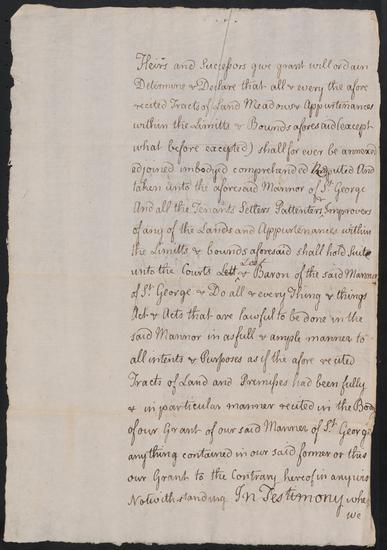 Heirs and Successors qwe grant will ordain
Determine & Declare that all & every the afore
recited Tracts of Land Meadows & Appurtenances
within the Limitts & Bounds aforesaid (except
what before excepted) shall for ever be annexed
adjoined imbodyed comprehended Reputed And
taken unto the aforesaid Mannor of St. George
And all the Tenants Setlers Pattenters & Improvers
of any of the Lands and Appurtenances within
the Limitts & bounds aforesaid shall hold Suite
unto the Courts Lett Leet & Baron of the said Mannor
of St. George & Do all & every Thing & things
Act & Acts that are lawful to be done in the
said Mannor in as full & ample manner to
all intents & Purposes as if the afore recited
Tracts of Land and Premisses had been fully
& in particular manner recited in the Body
of our Grant of our said Mannor of St. George
anything contained in our said former or this
our Grant to the Contrary hereof in any wis
Notwithstanding In Testimony whe
we